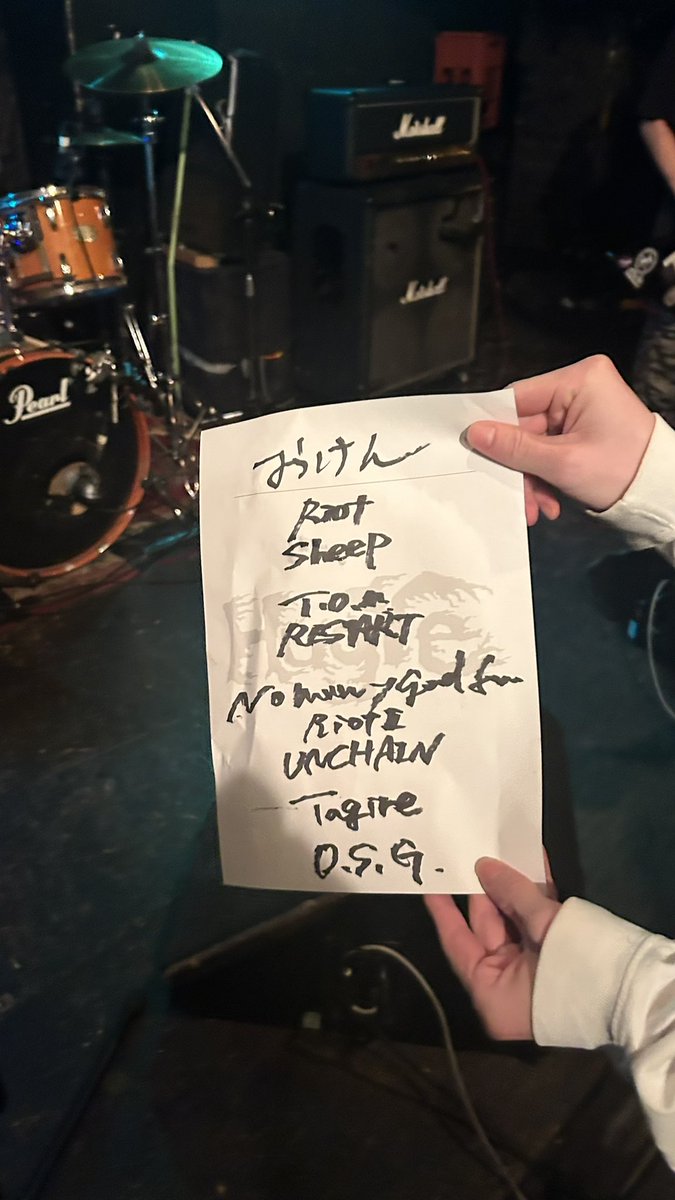 Marshall
Marshall
Pearl
おうけん
Riot
Sheep
T.O.A.
RESTART
No
Riot II
UNCHAIN
Tagire
O.S.G.